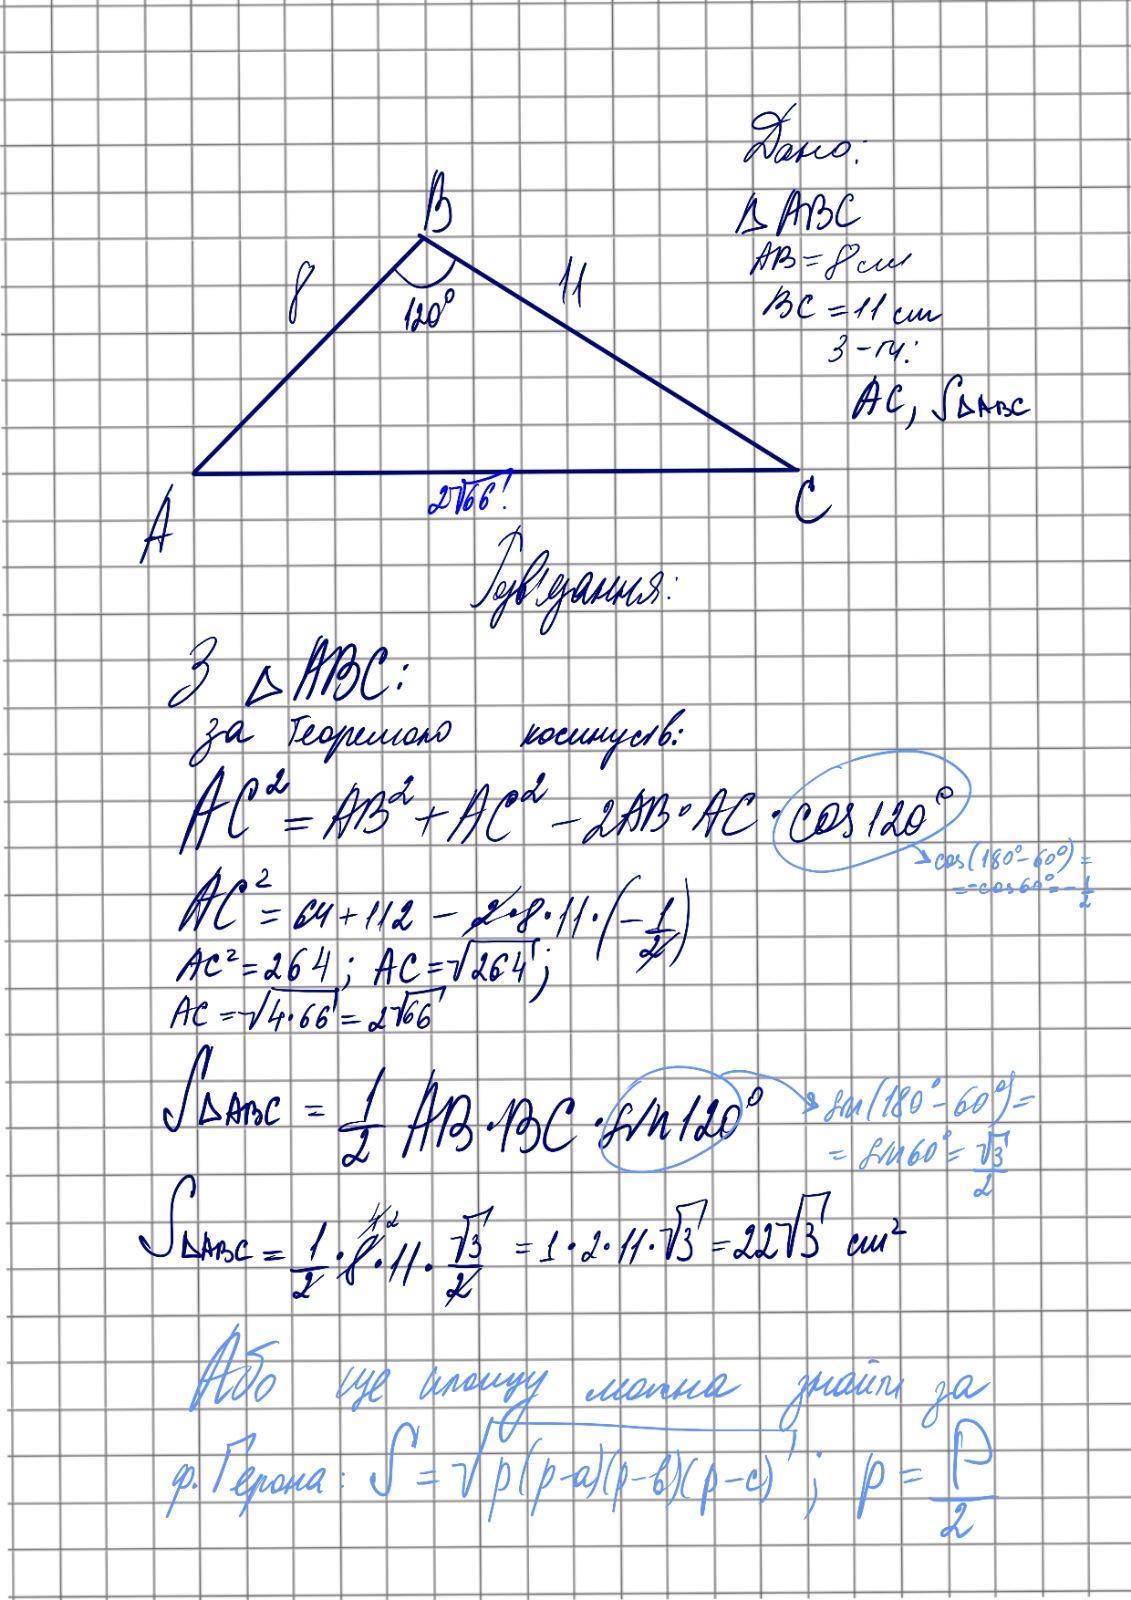 Дано:
△ ABC
AB = 8 cm
BC = 11 cm
З-ти:
AC, S△ABC
B
8
11
120°
A
2√66
C
З △ ABC:
за теоремою косинусів:
AC² = AB² + AC² - 2AB·AC · cos120°
cos(180°-60°) =
= -cos60° = -1/2
AC² = 64 + 112 - 2·8·11·(-1/2)
AC² = 264; AC = √264;
AC = √4·66 = 2√66
S△ABC = 1/2 AB·BC·sin120°
sin(180°-60°) =
= sin60° = √3/2
S△ABC = 1/2 · 8 · 11 · √3/2 = 1·2·11·√3 = 22√3 cm²
Або ще площу можна знайти за
ф. Герона: S = √p(p-a)(p-b)(p-c) ; p = P/2